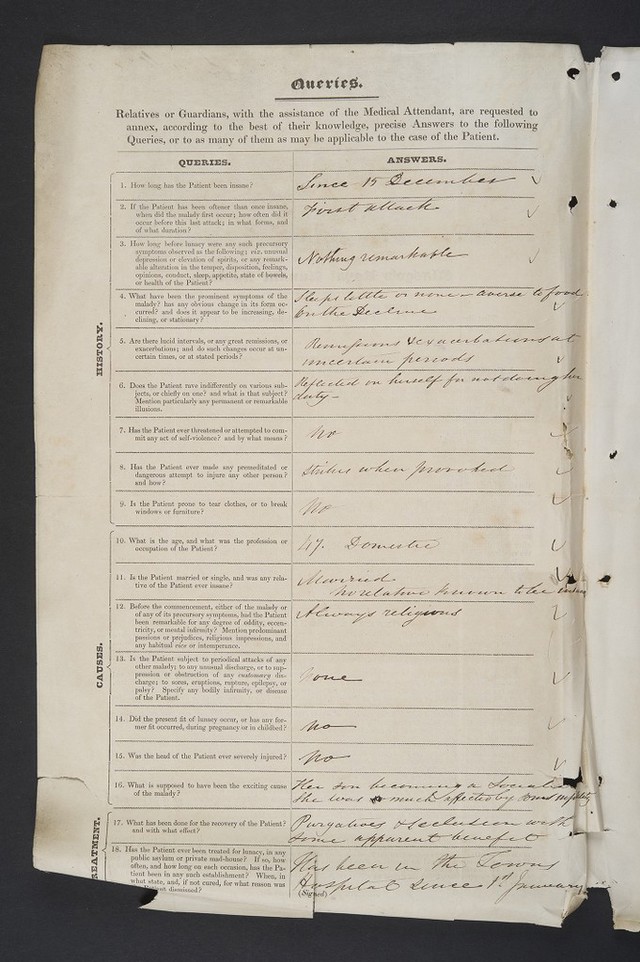 Queries.
Relatives or Guardians, with the assistance of the Medical Attendant, are requested to
annex, according to the best of their knowledge, precise Answers to the following
Queries, or to as many of them as may be applicable to the case of the Patient.
QUERIES.
ANSWERS.
HISTORY.
1. How long has the Patient been insane?
Since 15 December
2. If the Patient has been oftener than once insane,
when did the malady first occur; how often did it
occur before this last attack; in what forms, and
of what duration?
First attack
3. How long before lunacy were any such precursory
symptoms observed as the following; viz. unusual
depression or elevation of spirits, or any remark-
able alteration in the temper, disposition, feelings,
opinions, conduct, sleep, appetite, state of bowels,
or health of the Patient?
Nothing remarkable
4. What have been the prominent symptoms of the
malady? has any obvious change in its form oc-
curred? and does it appear to be increasing, de-
clining, or stationary?
Sleeps little or none - averse to food
On the Decline
5. Are there lucid intervals, or any great remissions, or
exacerbations; and do such changes occur at un-
certain times, or at stated periods?
Remissions & exacerbations at
uncertain periods
6. Does the Patient rave indifferently on various sub-
jects, or chiefly on one? and what is that subject?
Mention particularly any permanent or remarkable
illusions.
Reflected on herself for not doing her
duty -
7. Has the Patient ever threatened or attempted to com-
mit any act of self-violence? and by what means?
No
8. Has the Patient ever made any premeditated or
dangerous attempt to injure any other person?
and how?
Strikes when provoked
9. Is the Patient prone to tear clothes, or to break
windows or furniture?
No
CAUSES.
10. What is the age, and what was the profession or
occupation of the Patient?
47. Domestic
11. Is the Patient married or single, and was any rela-
tive of the Patient ever insane?
Married
no relative known to be insane
12. Before the commencement, either of the malady or
of any of its precursory symptoms, had the Patient
been remarkable for any degree of oddity, eccen-
tricity, or mental infirmity? Mention predominant
passions or prejudices, religious impressions, and
any habitual vice or intemperance.
Always religious
13. Is the Patient subject to periodical attacks of any
other malady; to any unusual discharge, or to sup-
pression or obstruction of any customary dis-
charge; to sores, eruptions, rupture, epilepsy, or
palsy? Specify any bodily infirmity, or disease
of the Patient.
None
14. Did the present fit of lunacy occur, or has any for-
mer fit occurred, during pregnancy or in childbed?
No
15. Was the head of the Patient ever severely injured?
No
16. What is supposed to have been the exciting cause
of the malady?
Her son becoming a Socialist
She was so much affected by his infidelity
TREATMENT.
17. What has been done for the recovery of the Patient?
and with what effect?
Purgatives & seclusion with
some apparent benefit
18. Has the Patient ever been treated for lunacy, in any
public asylum or private mad-house? If so, how
often, and how long on each occasion, has the Pa-
tient been in any such establishment? When, in
what state, and, if not cured, for what reason was
Patient dismissed?
Has been in the Towns
Hospital since 1st January
(Signed)